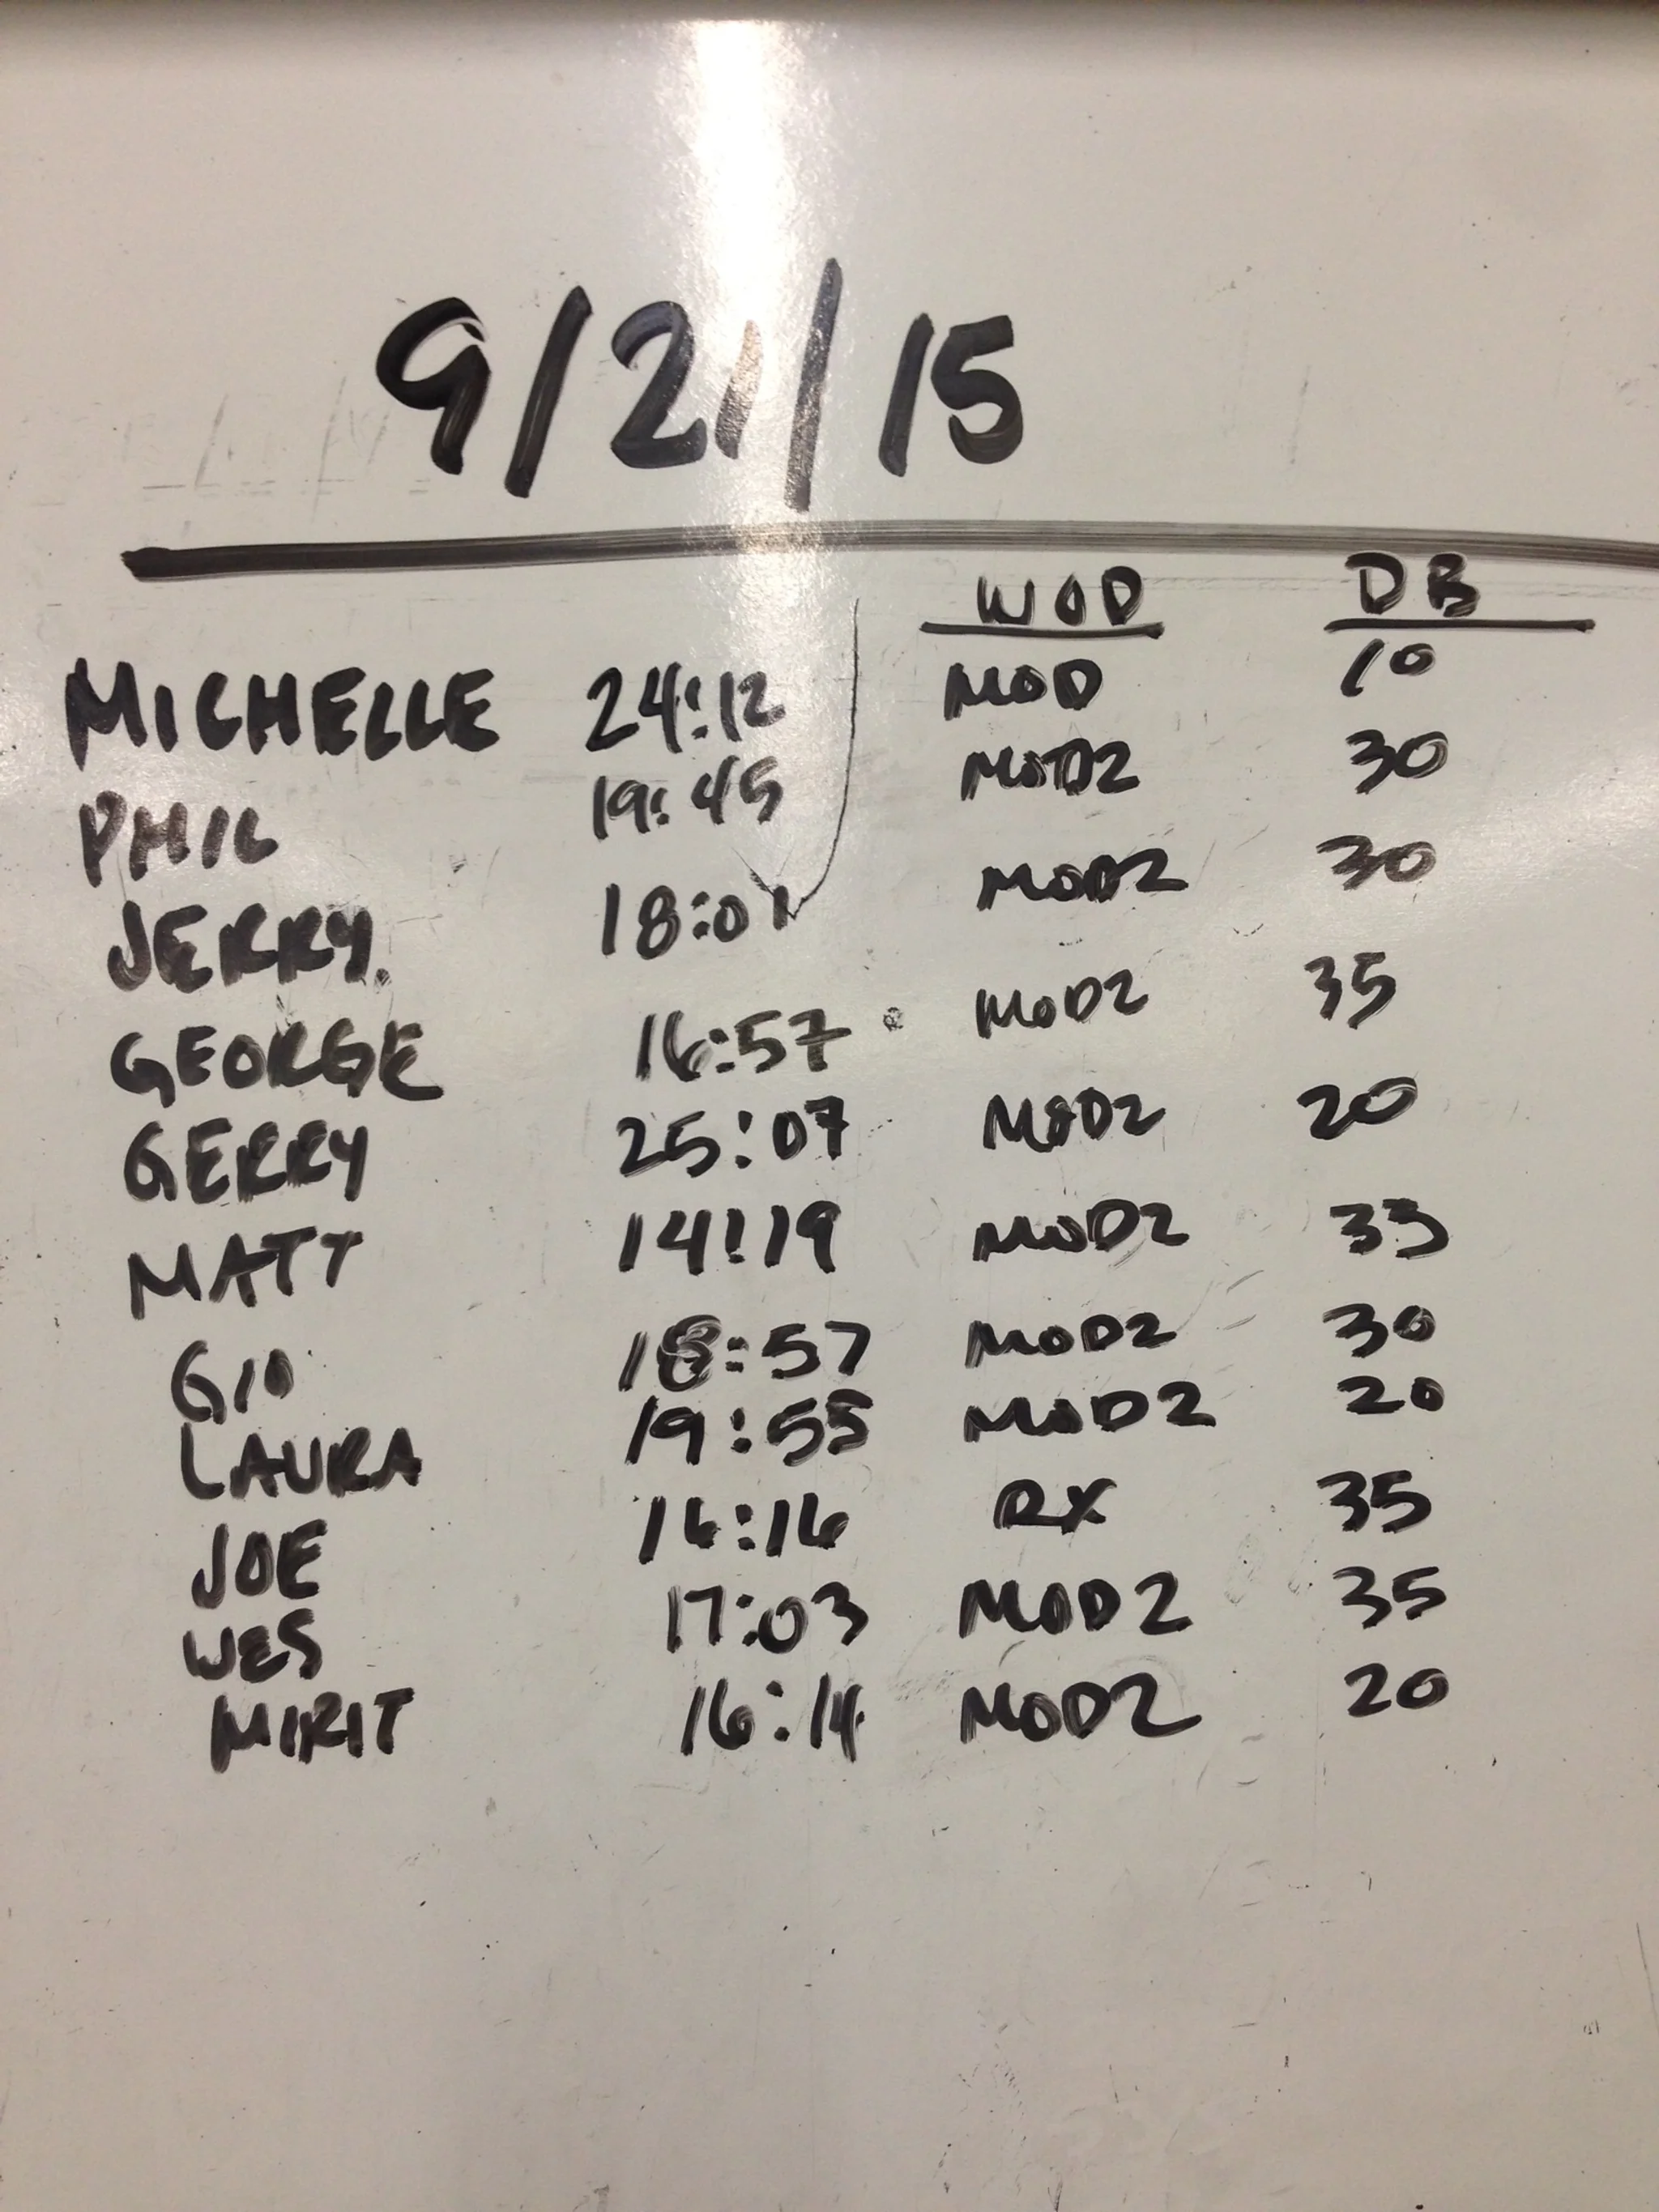 9/21/15
WOD DB
MICHELLE 24:12 MOD 10
PHIL 19:45 MOD2 30
JERRY. 18:01 MOD2 30
GEORGE 16:57 MOD2 35
GERRY 25:07 MOD2 20
MATT 14:19 MOD2 35
GIO 18:57 MOD2 30
LAURA 19:55 MOD2 20
JOE 16:16 RX 35
WES 17:03 MOD2 35
MIRIT 16:14 MOD2 20